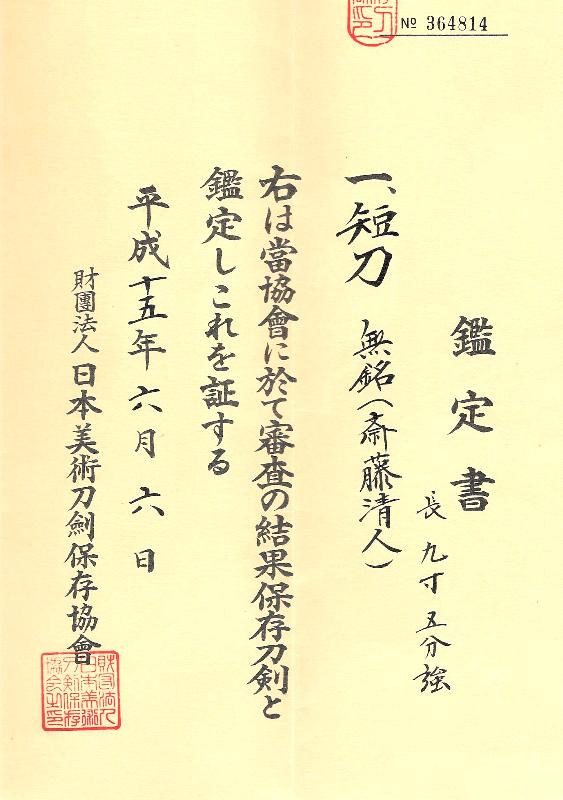 № 364814
鑑定書
長九寸五分強
一、短刀 無銘(斎藤清人)
右は當協會に於て審査の結果保存刀剣と
鑑定しこれを証する
平成十五年六月六日
財團法人日本美術刀劍保存協會
財団法人
日本美術
刀剣保存
協会之印